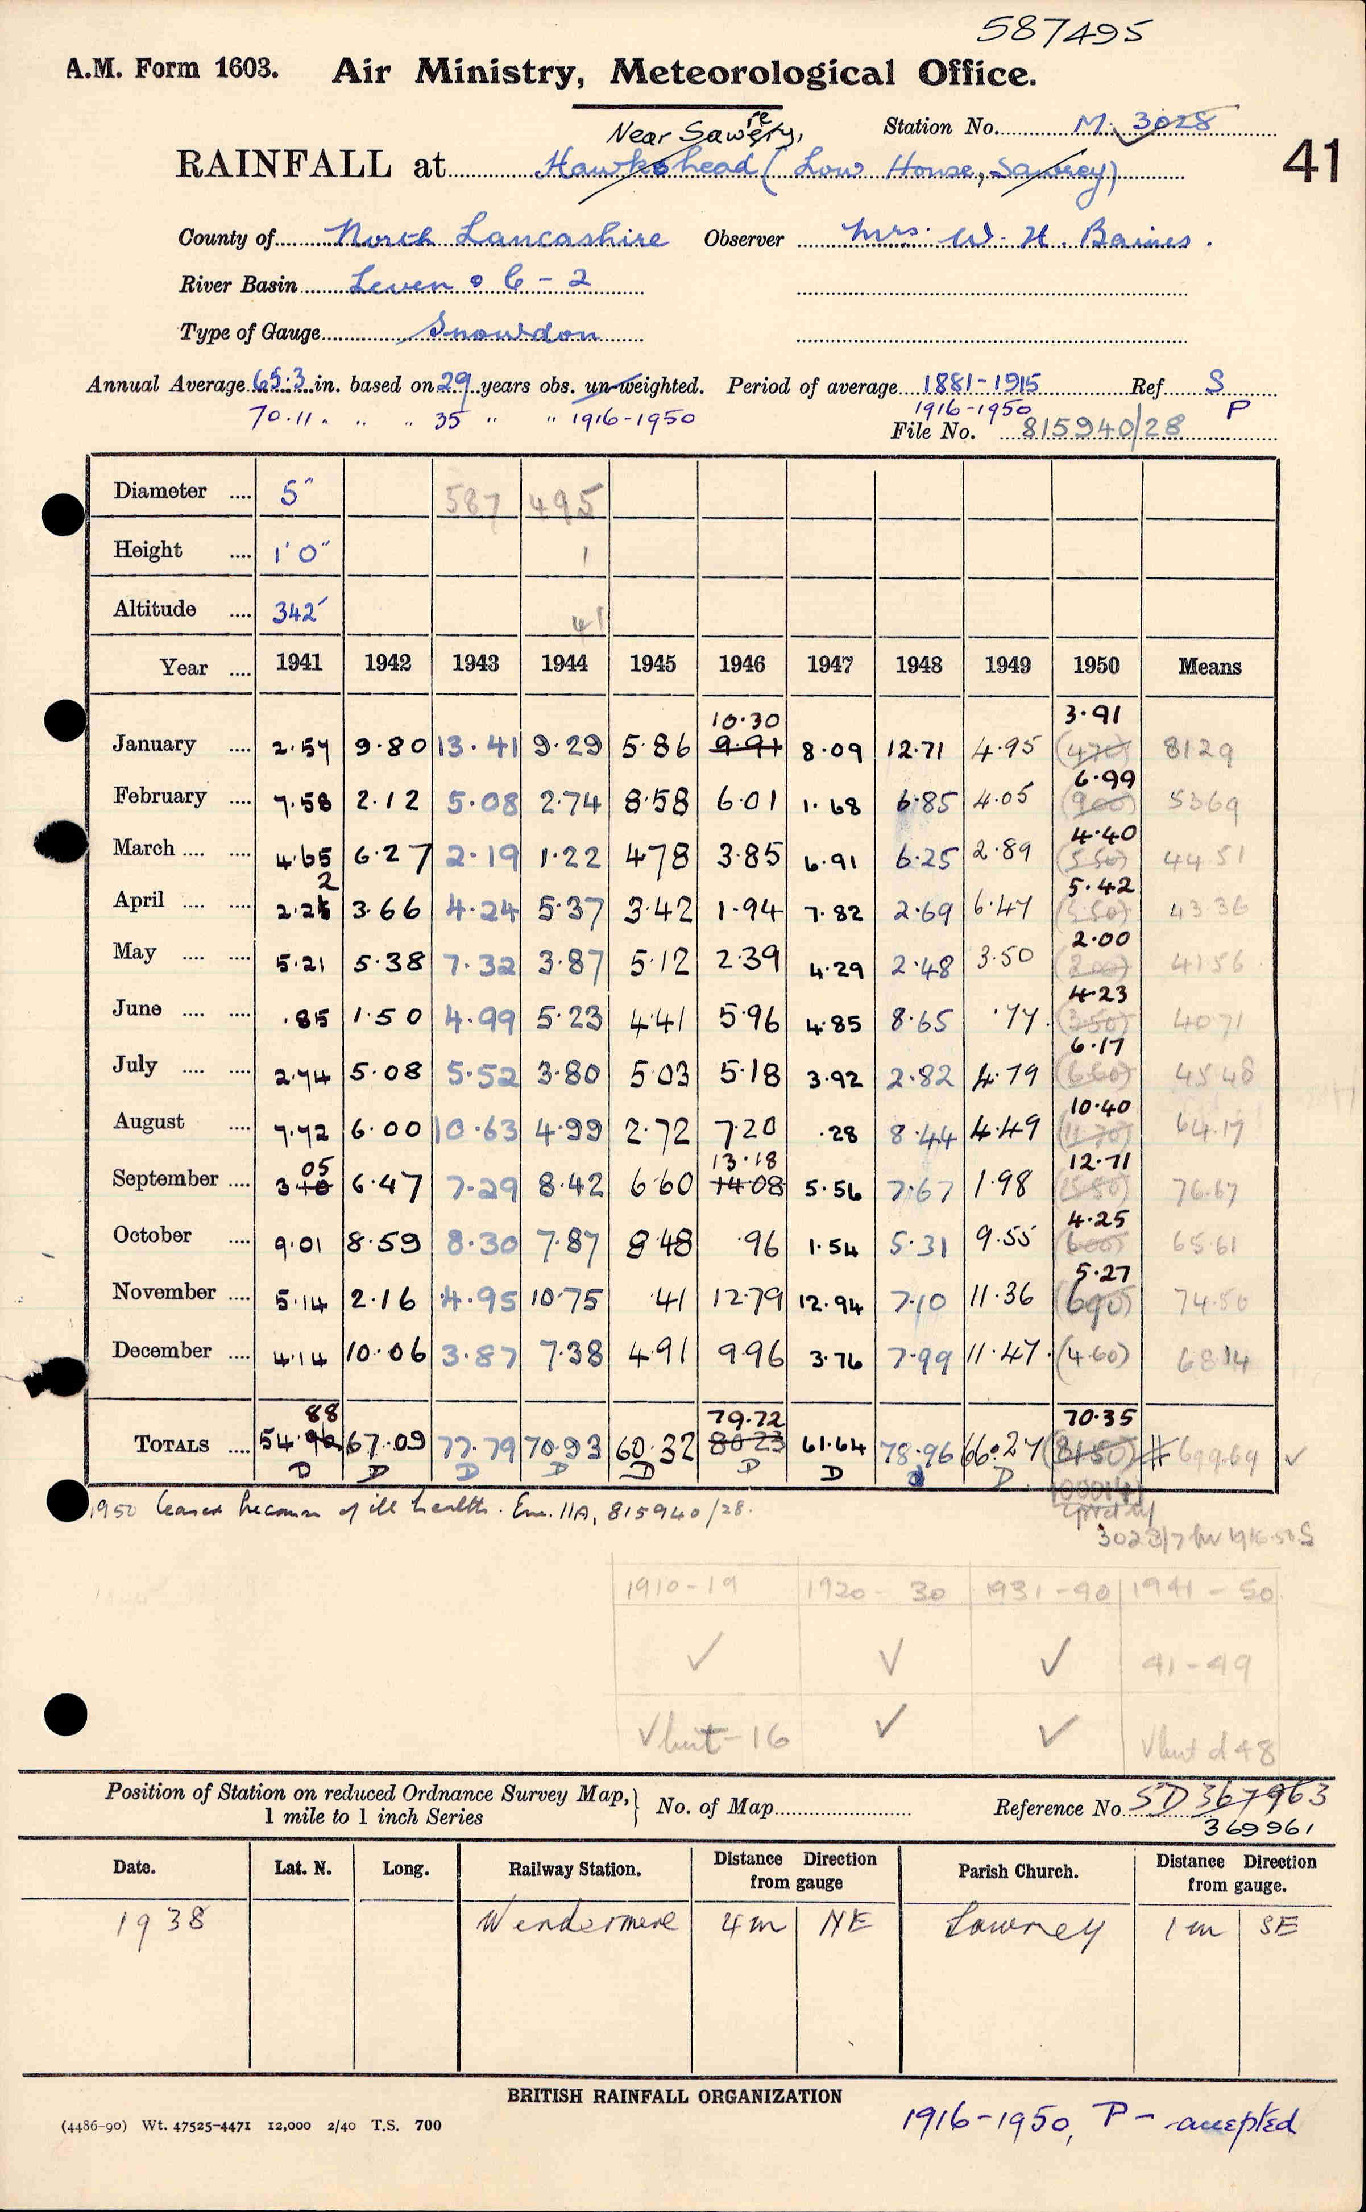 587495
A.M. Form 1603. Air Ministry, Meteorological Office.
Station No. M. 3028
Near Sawrey,
RAINFALL at Hawkshead (Low House, Sawrey)
41
County of North Lancashire Observer Mrs. W. H. Baines.
River Basin Leven o C - 2
Type of Gauge Snowdon
Annual Average 65.3 in. based on 29 years obs. un-weighted. Period of average 1881-1915 Ref. S
70.11. " " 35 " " 1916-1950 1916-1950 P
File No. 815940/28
Diameter .... 5" 587 495
Height .... 1'0" 1
Altitude .... 342' 41
Year .... 1941 1942 1943 1944 1945 1946 1947 1948 1949 1950 Means
10.30 3.91
January .... 2.57 9.80 13.41 9.29 5.86 9.91 8.09 12.71 4.95 (470) 8129
6.99
February .... 7.58 2.12 5.08 2.74 8.58 6.01 1.68 6.85 4.05 (900) 5369
4.40
March .... .... 4.65 6.27 2.19 1.22 4.78 3.85 6.91 6.25 2.89 (5.50) 44.51
2 5.42
April .... .... 2.2 3.66 4.24 5.37 3.42 1.94 7.82 2.69 6.47 (5.50) 43.36
2.00
May .... .... 5.21 5.38 7.32 3.87 5.12 2.39 4.29 2.48 3.50 (2.00) 41.56
4.23
June .... .... .85 1.50 4.99 5.23 4.41 5.96 4.85 8.65 .77 (3.50) 40.71
6.17
July .... .... 2.74 5.08 5.52 3.80 5.03 5.18 3.92 2.82 4.79 (6.60) 45.48
10.40
August .... 7.72 6.00 10.63 4.99 2.72 7.20 .28 8.44 4.49 (11.70) 64.17
05 13.18 12.71
September .... 3.10 6.47 7.29 8.42 6.60 14.08 5.56 7.67 1.98 76.67
4.25
October .... 9.01 8.59 8.30 7.87 8.48 .96 1.54 5.31 9.55 (6.00) 65.61
5.27
November .... 5.14 2.16 4.95 10.75 .41 12.79 12.94 7.10 11.36 (6.90) 74.50
December .... 4.14 10.06 3.87 7.38 4.91 9.96 3.76 7.99 11.47 (4.60) 68.14
88 79.72 70.35
TOTALS .... 54.96 67.09 77.79 70.93 60.32 80.23 61.64 78.96 66.27 (81.50) # 699.69 ✓
D D D D D D D d D
1950 ceased because of ill health. Enc. 11A, 815940/28.
3023/7 for 1916-50 S
1910-19 1920-30 1931-40 1941-50
✓ ✓ ✓ 41-49
✓ but -16 ✓ ✓ ✓ but d 48
Position of Station on reduced Ordnance Survey Map,} No. of Map Reference No. SD 367963
1 mile to 1 inch Series
369961
Date. Lat. N. Long. Railway Station. Distance Direction from gauge Parish Church. Distance Direction from gauge.
1938 Windermere 4 m NE Sawrey 1 m SE
BRITISH RAINFALL ORGANIZATION
(4486-90) Wt. 47525-4471 12,000 2/40 T.S. 700
1916-1950, P - accepted